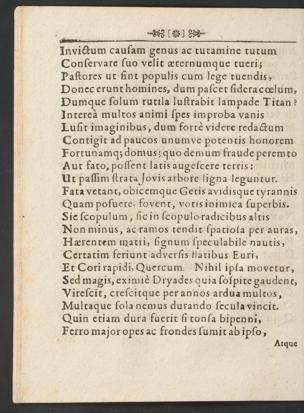 Invictum causam genus ac tutamine tutum
Conservare suo velit æternumque tueri;
Pastores ut sint populis cum lege tuendis,
Donec erunt homines, dum pascet sidera cœlum,
Dumque solum rutila lustrabit lampade Titan?
Intereà multos animi spes improba vanis
Lusit imaginibus, dum fortè videre redactum
Contigit ad paucos unumve potentis honorem
Fortunamq; domus; quo demum fraude peremto
Aut fato, possent latis augescere terris:
Ut passim strata Jovis arbore ligna leguntur.
Fata vetant, obicemque Getis avidisque tyrannis
Quam posuere, fovent, votis inimica superbis.
Sic scopulum, sic in scopulo radicibus altis
Non minus, ac ramos tendit spatiosa per auras,
Hærentem matri, signum speculabile nautis,
Certatim feriunt adversis flatibus Euri,
Et Cori rapidi, Quercum. Nihil ipsa movetur,
Sed magis, eximiè Dryades quia sospite gaudent,
Virescit, crescitque per annos ardua multos,
Multaque sola nemus durando secula vincit.
Quin etiam dura fuerit si tonsa bipenni,
Ferro major opes ac frondes sumit ab ipso,
Atque